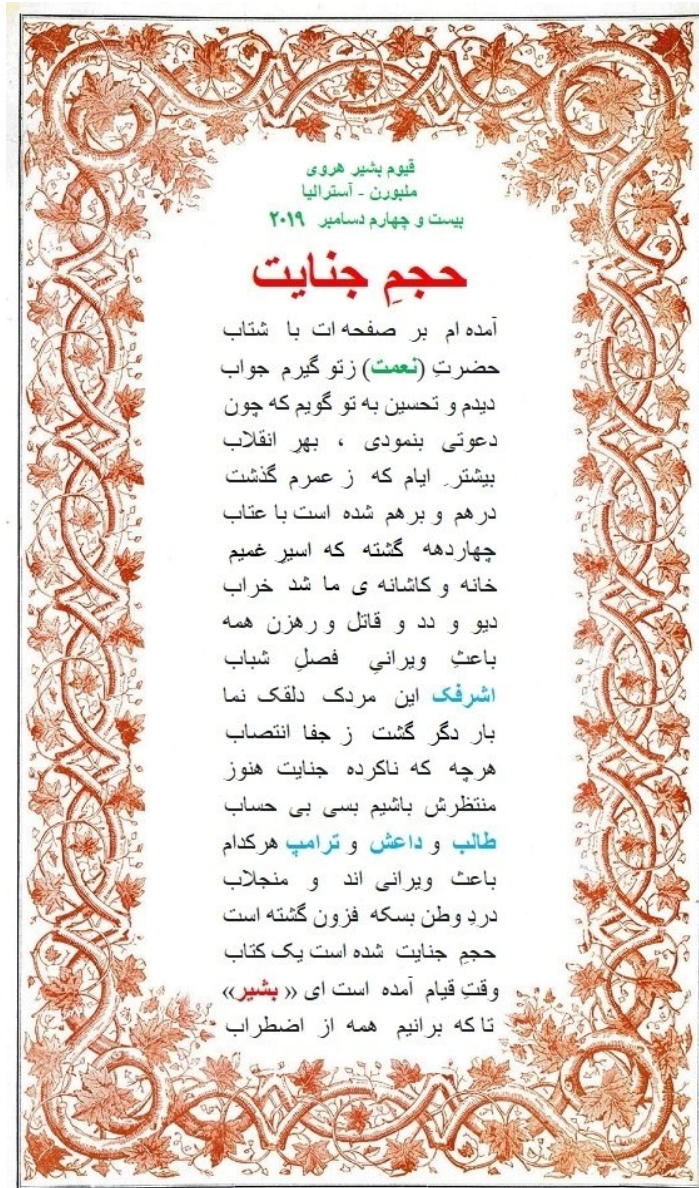 قیوم بشیر هروی
ملبورن - آسترالیا
بیست و چهارم دسامبر ۲۰۱۹
حجمِ جنایت
آمده ام بر صفحه ات با شتاب
حضرتِ (نعمت) زتو گیرم جواب
دیدم و تحسین به تو گویم که چون
دعوتی بنمودی ، بهرِ انقلاب
بیشترِ ایام که ز عمرم گذشت
درهم و برهم شده است با عتاب
چهاردهه گشته که اسیرِ غمیم
خانه و کاشانه ی ما شد خراب
دیو و دد و قاتل و رهزن همه
باعثِ ویرانیِ فصلِ شباب
اشرفک این مردک دلقک نما
بار دگر گشت ز جفا انتصاب
هرچه که ناکرده جنایت هنوز
منتظرش باشیم بسی بی حساب
طالب و داعش و ترامپ هرکدام
باعث ویرانی اند و منجلاب
دردِ وطن بسکه فزون گشته است
حجمِ جنایت شده است یک کتاب
وقتِ قیام آمده است ای « بشیر»
تا که برانیم همه از اضطراب